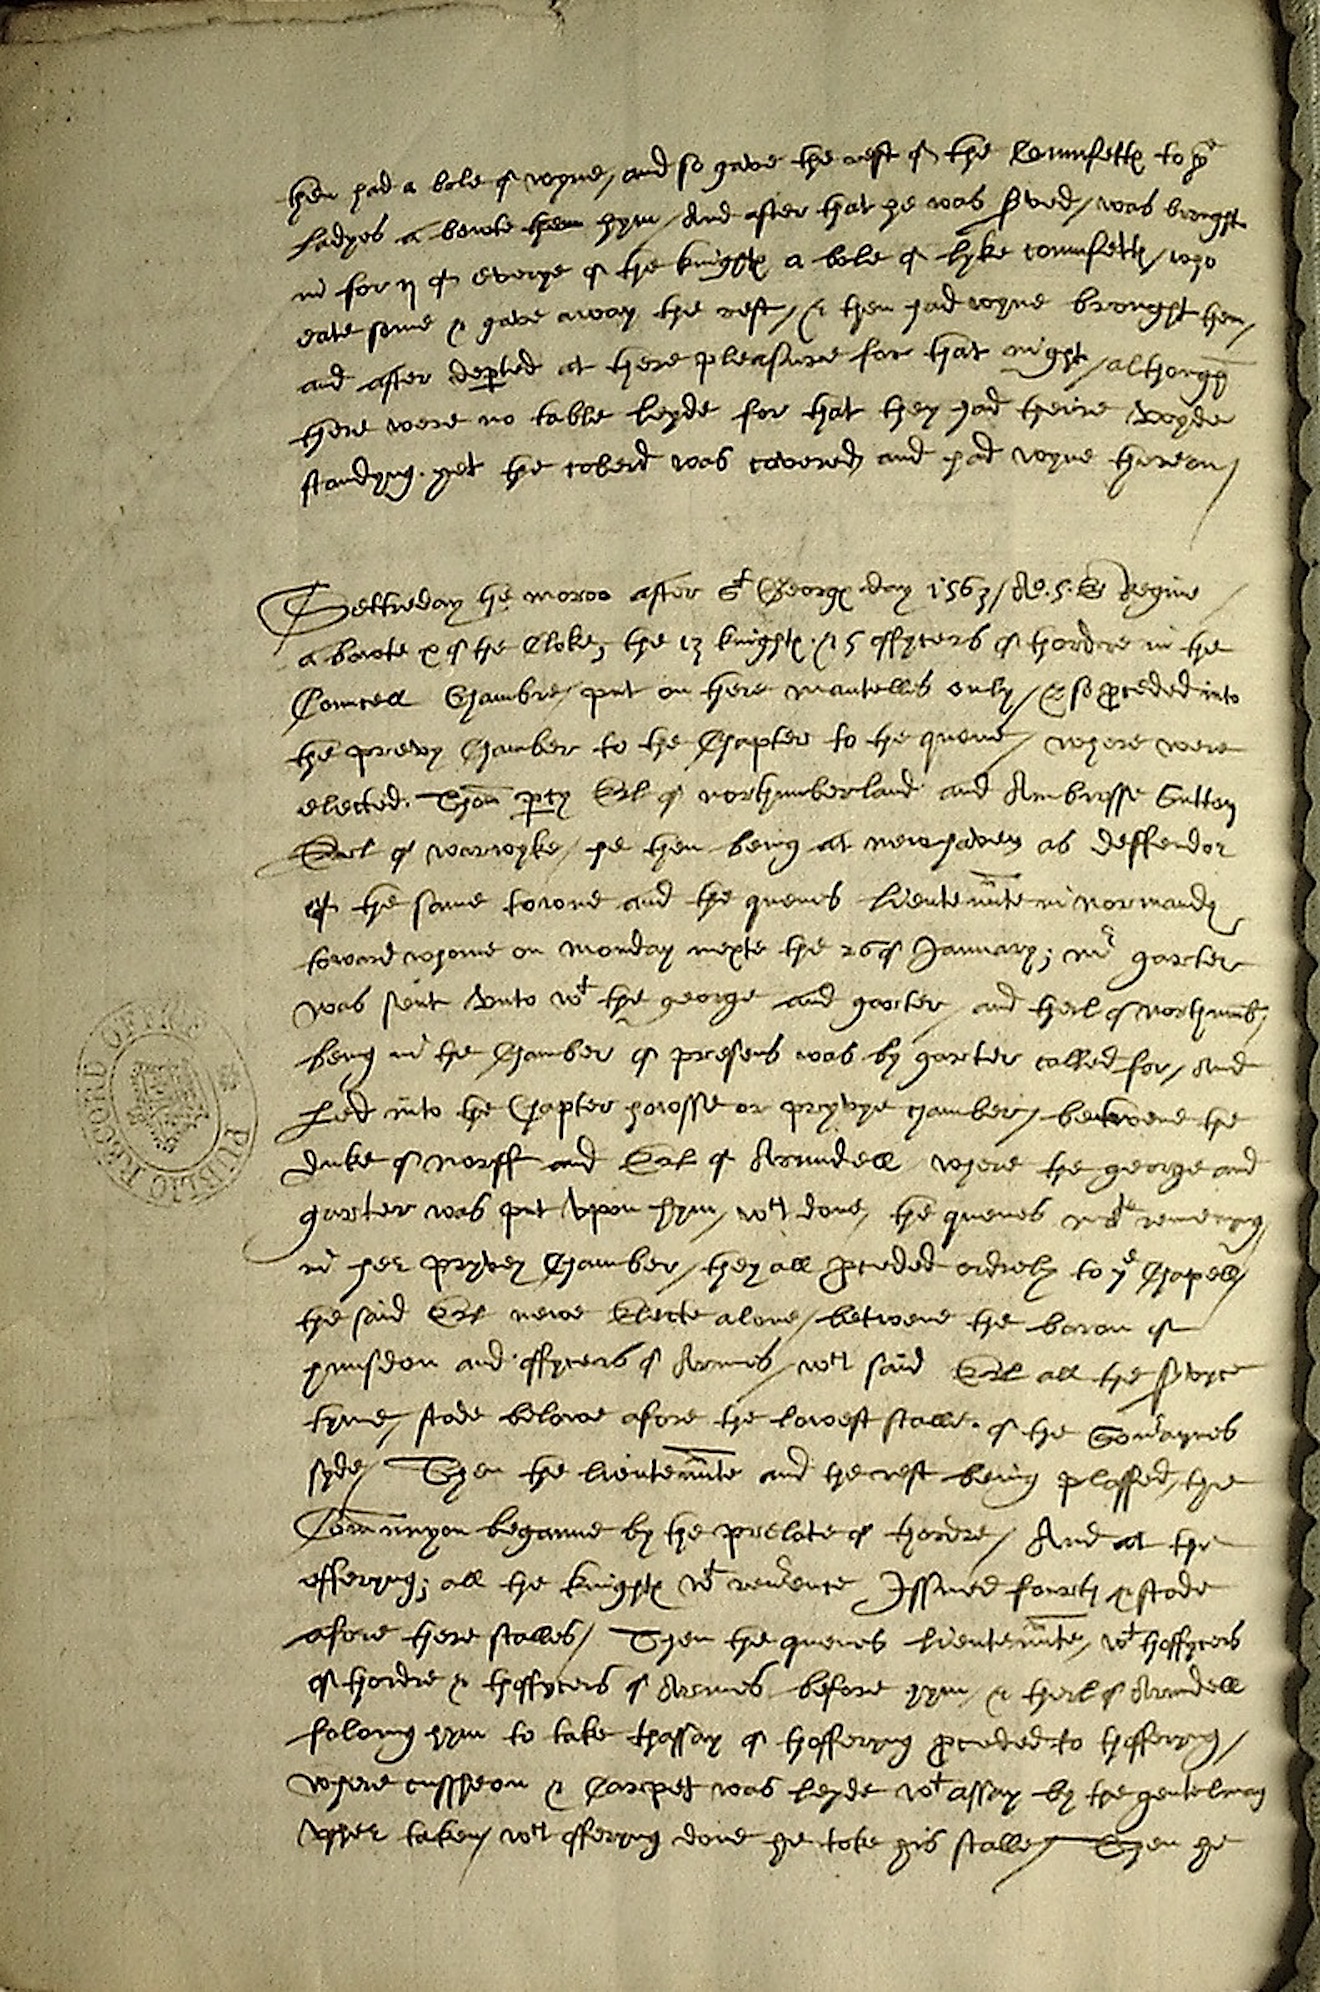 then had a bole of wyne, and so gave the rest of the Comfett to ye
ladyes a bowte them hym / And after that he was served / was brought
in for ij of everye of the knightes a bole of lyke comfettes / who
eate some & gave away the rest / & then had wyne brought then /
and after departed at there pleasure for that night / althoughe
there were no table leyde for that they had theire voyde
standyng. yet the coberd was covered and had wyne thereon /
Setterday the moroo after St Georges day 1563 / Ao. 5. E Regine
a bowte x of the Cloke, the 13 knightes & 5 offycers of thordre in the
Councell Chambre / put on there mantelles only / & so proceded into
the prevy Chamber to the Chapter to the quene / where were
elected. Thom percy Erl of northumberland and Ambrosse Sutton
Earl of warwyke / he then being at newhaven as deffendor
of the same towne and the quenes lieutenunte in normandy
toward whome on monday nexte the 26 of January; mr garter
was sent vnto wt the george and garter / and therl of northumb /
being in the Chamber of presens was by garter called for / And
led into the Chapter howsse or pryvye chamber / betwene the
duke of norff and Erl of Arundell / where the george and
garter was put vpon hym / wch done / the quenes mate remenyng
in her pryvey Chamber / they all proceded orderly to ye Chapell /
the said Erl newe Electe alone / betwene the baron of
hunsdon and offycers of Armes / wch said Erl all the servyce
tyme / stode belowe afore the lowest stalle. of the Soveraynes
syde / Then the lieutenunte and the rest being plassed / the
Communyon beganne by the prelate of thordre / And at the
offeryng; all the knightes wt reverence Issued fourth & stode
afore there stalles / Then the quenes lieutenunte / wt thoffycers
of thordre & thoffycers of Armes before hym / & therl of Arundell
folowing hym to take thassay of thofferyng proceded to thofferyng /
where cussheon & Carpet was leyde wt assay by the gentelman
vssher taken / wch offeryng done he toke his stalle / Then he
PUBLIC RECORD OFFICE